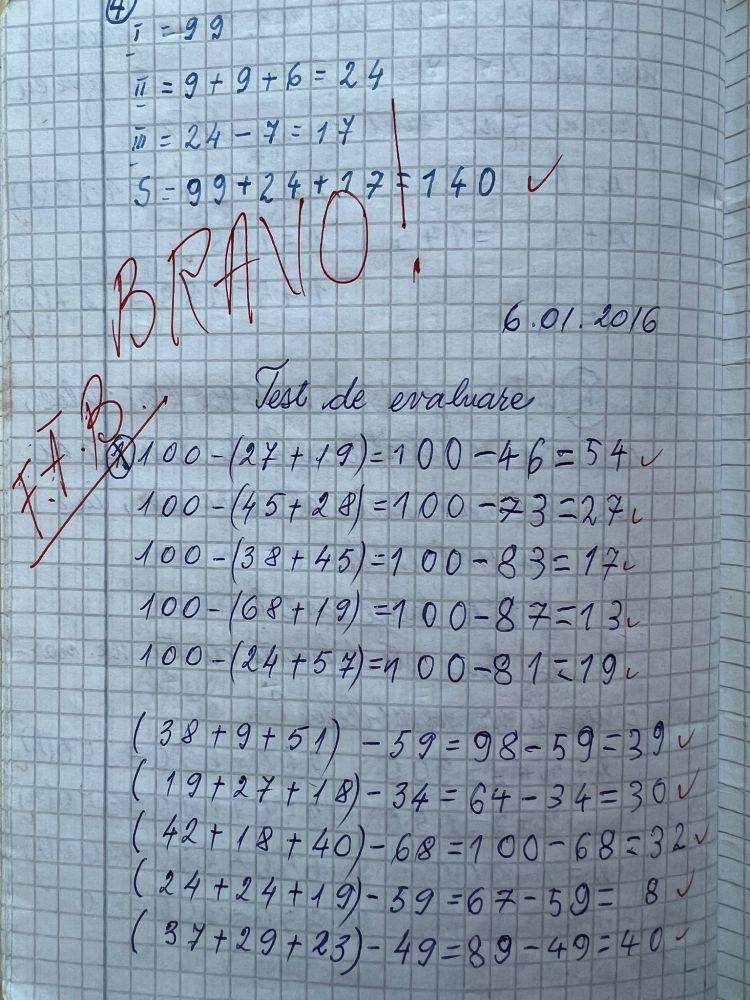 4
I = 99
II = 9 + 9 + 6 = 24
III = 24 - 7 = 17
S = 99 + 24 + 17 = 140 ✓
BRAVO!
6.01.2016
F.A.B.
Test de evaluare
1 100 - (27 + 19) = 100 - 46 = 54 ✓
100 - (45 + 28) = 100 - 73 = 27 ✓
100 - (38 + 45) = 100 - 83 = 17 ✓
100 - (68 + 19) = 100 - 87 = 13 ✓
100 - (24 + 57) = 100 - 81 = 19 ✓
(38 + 9 + 51) - 59 = 98 - 59 = 39 ✓
(19 + 27 + 18) - 34 = 64 - 34 = 30 ✓
(42 + 18 + 40) - 68 = 100 - 68 = 32 ✓
(24 + 24 + 19) - 59 = 67 - 59 = 8 ✓
(37 + 29 + 23) - 49 = 89 - 49 = 40 ✓